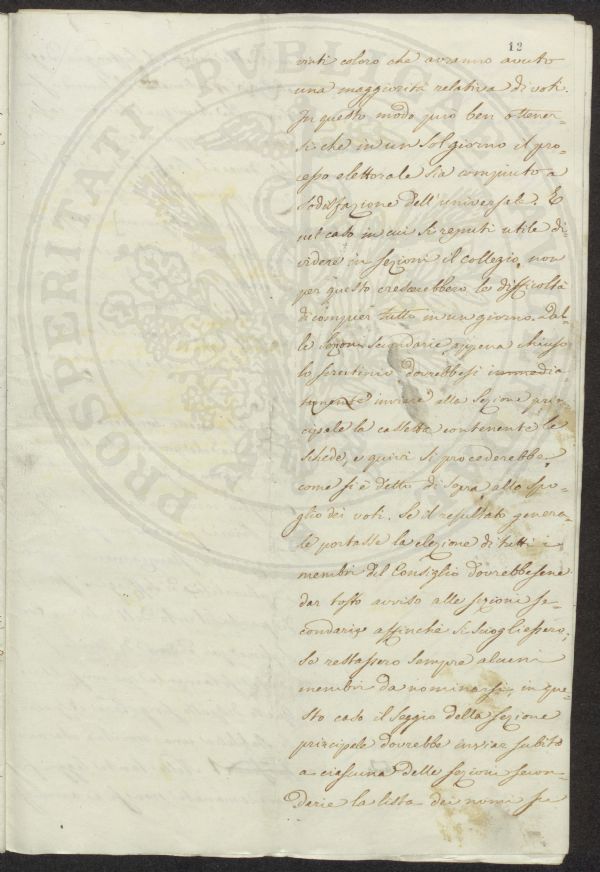 12
PROSPERITATI PUBLICAE
coloro che avranno avuto
una maggiorità relativa di voti.
In questo modo può ben ottener-
si che in un sol giorno il pro-
cesso elettorale sia compiuto a
sodisfazione dell'universale. E
nel caso in cui si reputi utile di-
videre in sezioni il collegio, non
per questo crescerebbero le difficoltà
di compier tutto in un giorno. Dal-
le Sezioni secondarie appena chiuso
lo scrutinio dovrebbesi immedia
tamente inviare alla Sezione prin-
cipale la cassetta contenente le
schede, e quivi si procederebbe
come si è detto di sopra allo spo-
glio dei voti. Se il resultato genera-
le portasse la elezione di tutti i
membri del Consiglio dovrebbesene
dar tosto avviso alle sezioni se-
condarie affinchè si sciogliessero.
Se restassero sempre alcuni
membri da nominarsi, in que-
sto caso il Seggio della Sezione
principale dovrebbe inviar subito
a ciascuna delle sezioni secon-
darie la lista dei nomi fra